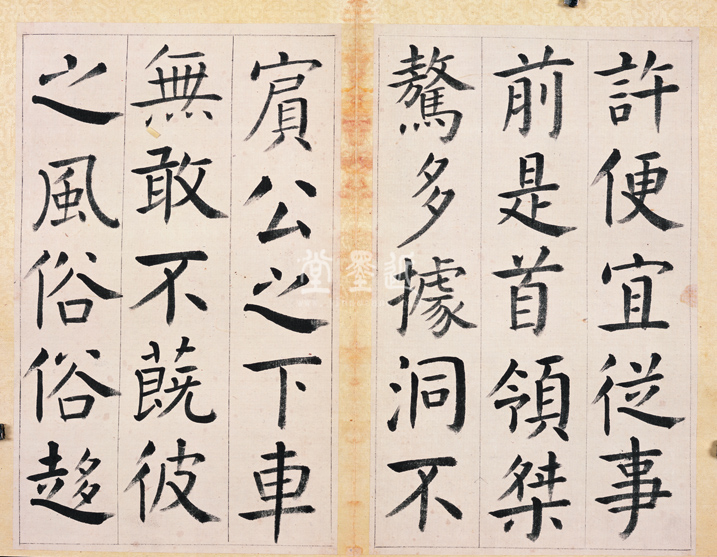 許便宜從事
前是首領桀
驁多據洞不
賔公之下車
無敢不蔇彼
之風俗俗趍
近墨堂